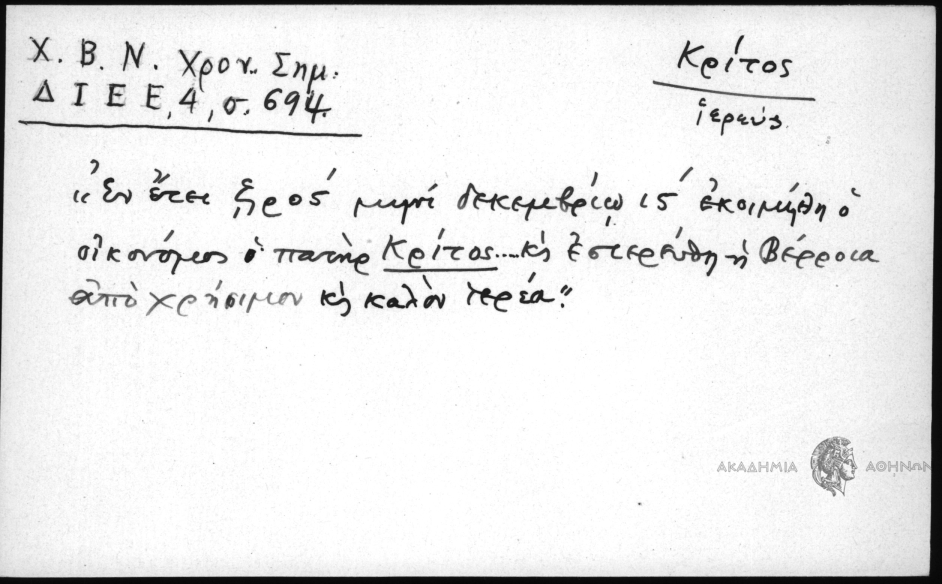 Χ. Β. Ν. Χρον. Σημ.
Δ Ι Ε Ε, 4, σ. 694.
Κρίτος
ἱερεύς
"Ἐν ἔτει ξρος΄ μηνί δεκεμβρίῳ ις΄ ἐκοιμήθη ὁ
οἰκονόμος ὁ πατὴρ Κρίτος.... κὴ ἐστερεύθη ἡ Βέρροια
ἀπὸ χρήσιμον κὴ καλὸν ἱερέα."
ΑΚΑΔΗΜΙΑ ΑΘΗΝΩΝ